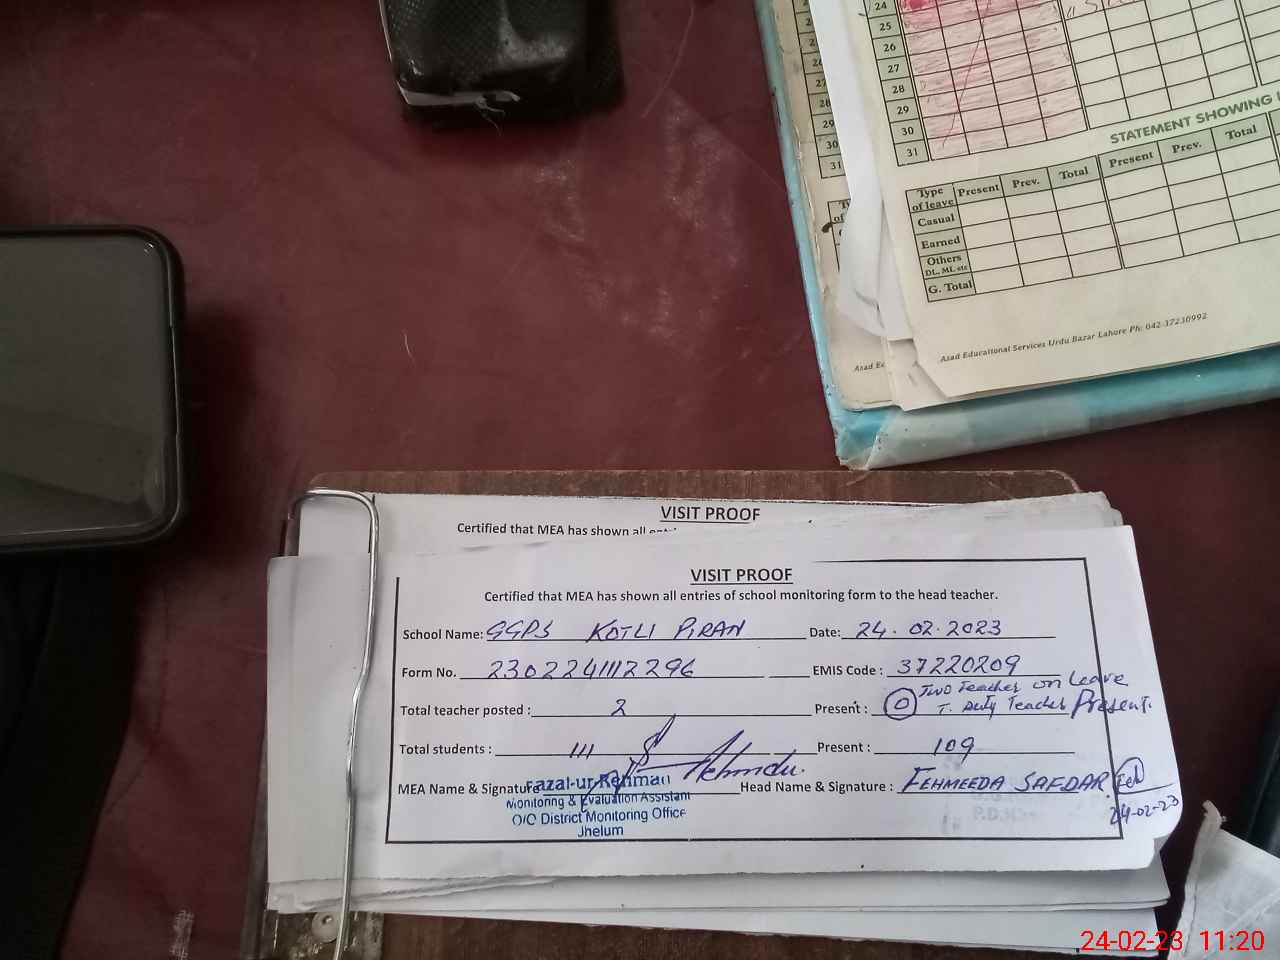 24
25
26
27
28
29
30
31
STATEMENT SHOWING
Type of leave Present Prev. Total Present Prev. Total
Casual
Earned
Others DL, ML etc
G. Total
Asad Educational Services Urdu Bazar Lahore Ph: 042-37230992
VISIT PROOF
Certified that MEA has shown all
VISIT PROOF
Certified that MEA has shown all entries of school monitoring form to the head teacher.
School Name: GGPS KOTLI PIRAN Date: 24.02.2023
Form No. 2302241112296 EMIS Code : 37220209
Total teacher posted : 2 Present : 0 Two Teacher on Leave
T. Duty Teacher Present.
Total students : 111 Present : 109
MEA Name & Signature Fazal-ur-Rehman Head Name & Signature : FEHMEEDA SAFDAR
Monitoring & Evaluation Assistant
O/O District Monitoring Office
Jhelum
24-02-23
24-02-23 11:20